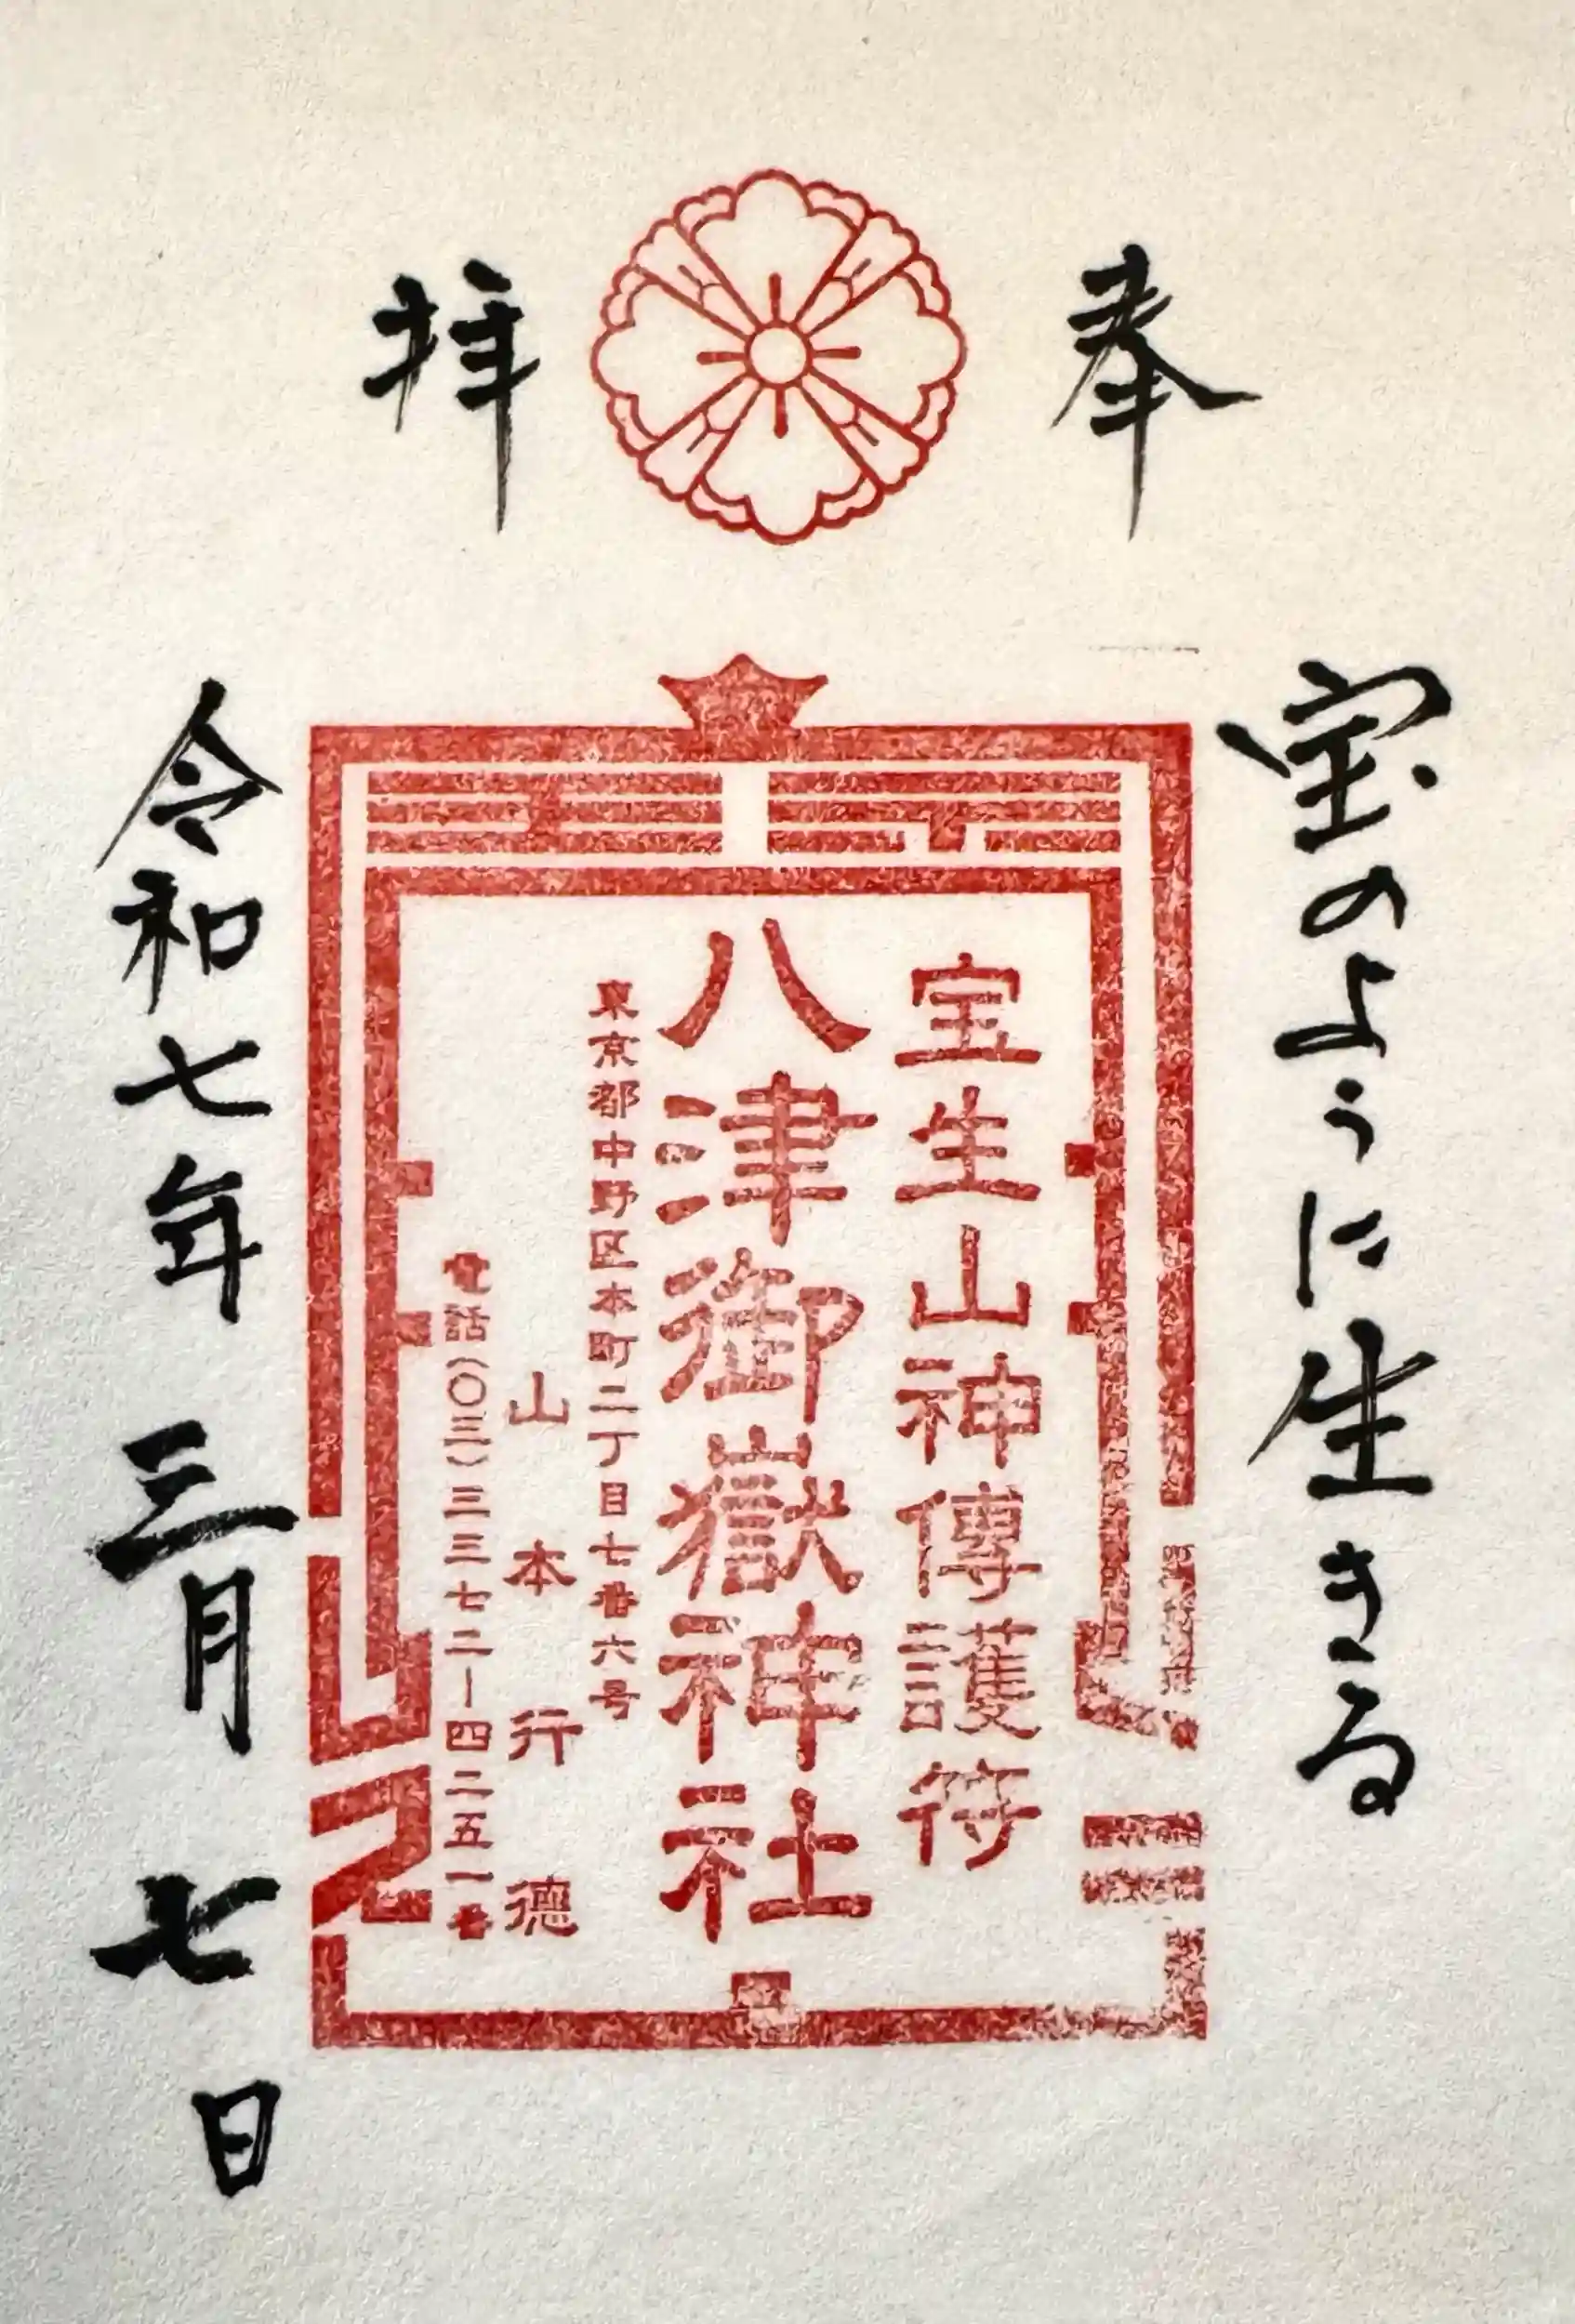 奉拝
宝のように生きる
宝生山神傳護符
八津御嶽神社
東京都中野区本町二丁目七番六号
山本行德
電話(〇三)三三七二―四二五一番
令和七年三月七日